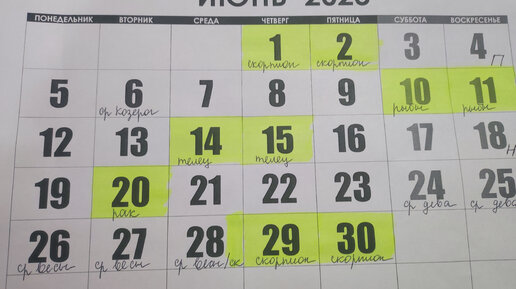 ИЮНЬ 2023
ПОНЕДЕЛЬНИК ВТОРНИК СРЕДА ЧЕТВЕРГ ПЯТНИЦА СУББОТА ВОСКРЕСЕНЬЕ
1 2 3 4
скорпион скорпион П
5 6 7 8 9 10 11
ср козерог рыбы рыбы
12 13 14 15 16 17 18
телец телец Н
19 20 21 22 23 24 25
рак ср дева ср дева
26 27 28 29 30
ср весы ср весы ср весы/ск скорпион скорпион